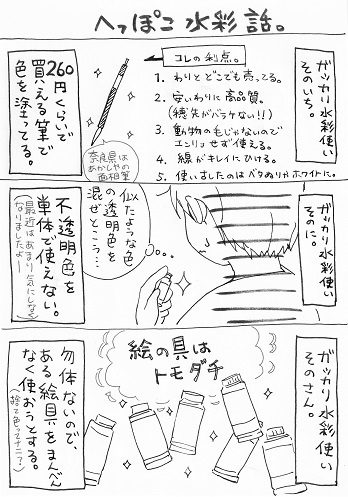 へっぽこ水彩話。
ガッカリ水彩使い
そのいち。
コレの利点。
1. わりとどこでも売ってる。
2. 安いわりに高品質。
(穂先がバラケない!!)
3. 動物の毛じゃないので
エンリョせず使える。
4. 線がキレイにひける。
5. 使いましたのはベタぬりかホワイトに。
奈良県は
あかしやの
面相筆
260円くらいで
買える筆で
色を塗ってる。
ガッカリ水彩使い
そのに。
似たような色
の透明色を
混ぜとこう…
不透明色を
単体で使えない。
(最近はあまり気にしなく
なりましたよー)
ガッカリ水彩使い
そのさん。
絵の具は
トモダチ
勿体ないので、
ある絵具をまんべん
なく使おうとする。
(捨て色ってナニ?)